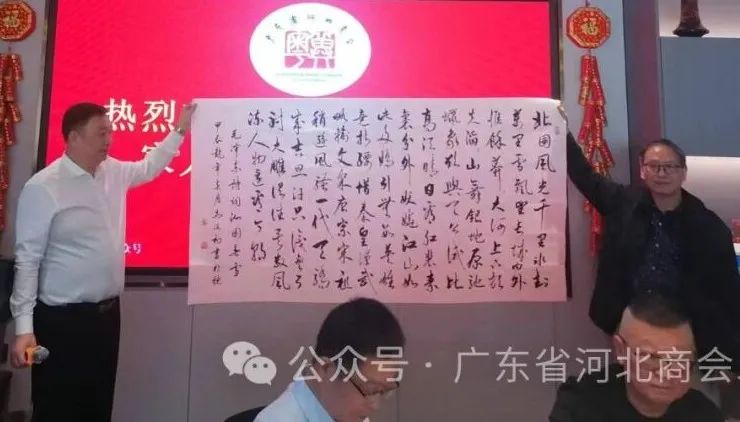 广东省河北商会
热烈
家人
北国风光千里冰封
万里雪飘望长城内外
惟餘莽莽大河上下顿
失滔滔山舞银蛇原驰
蜡象欲與天公试比
高须晴日看红装素
裹分外妖娆江山如
此多娇引無數英雄
竞折腰惜秦皇漢武
略输文采唐宗宋祖
稍逊风骚一代天骄
成吉思汗只识弯弓
射大雕俱往矣數风
流人物還看今朝
毛泽东诗词沁园春雪
甲辰龙年
書於穗
众号
福
福
公众号 · 广东省河北商会